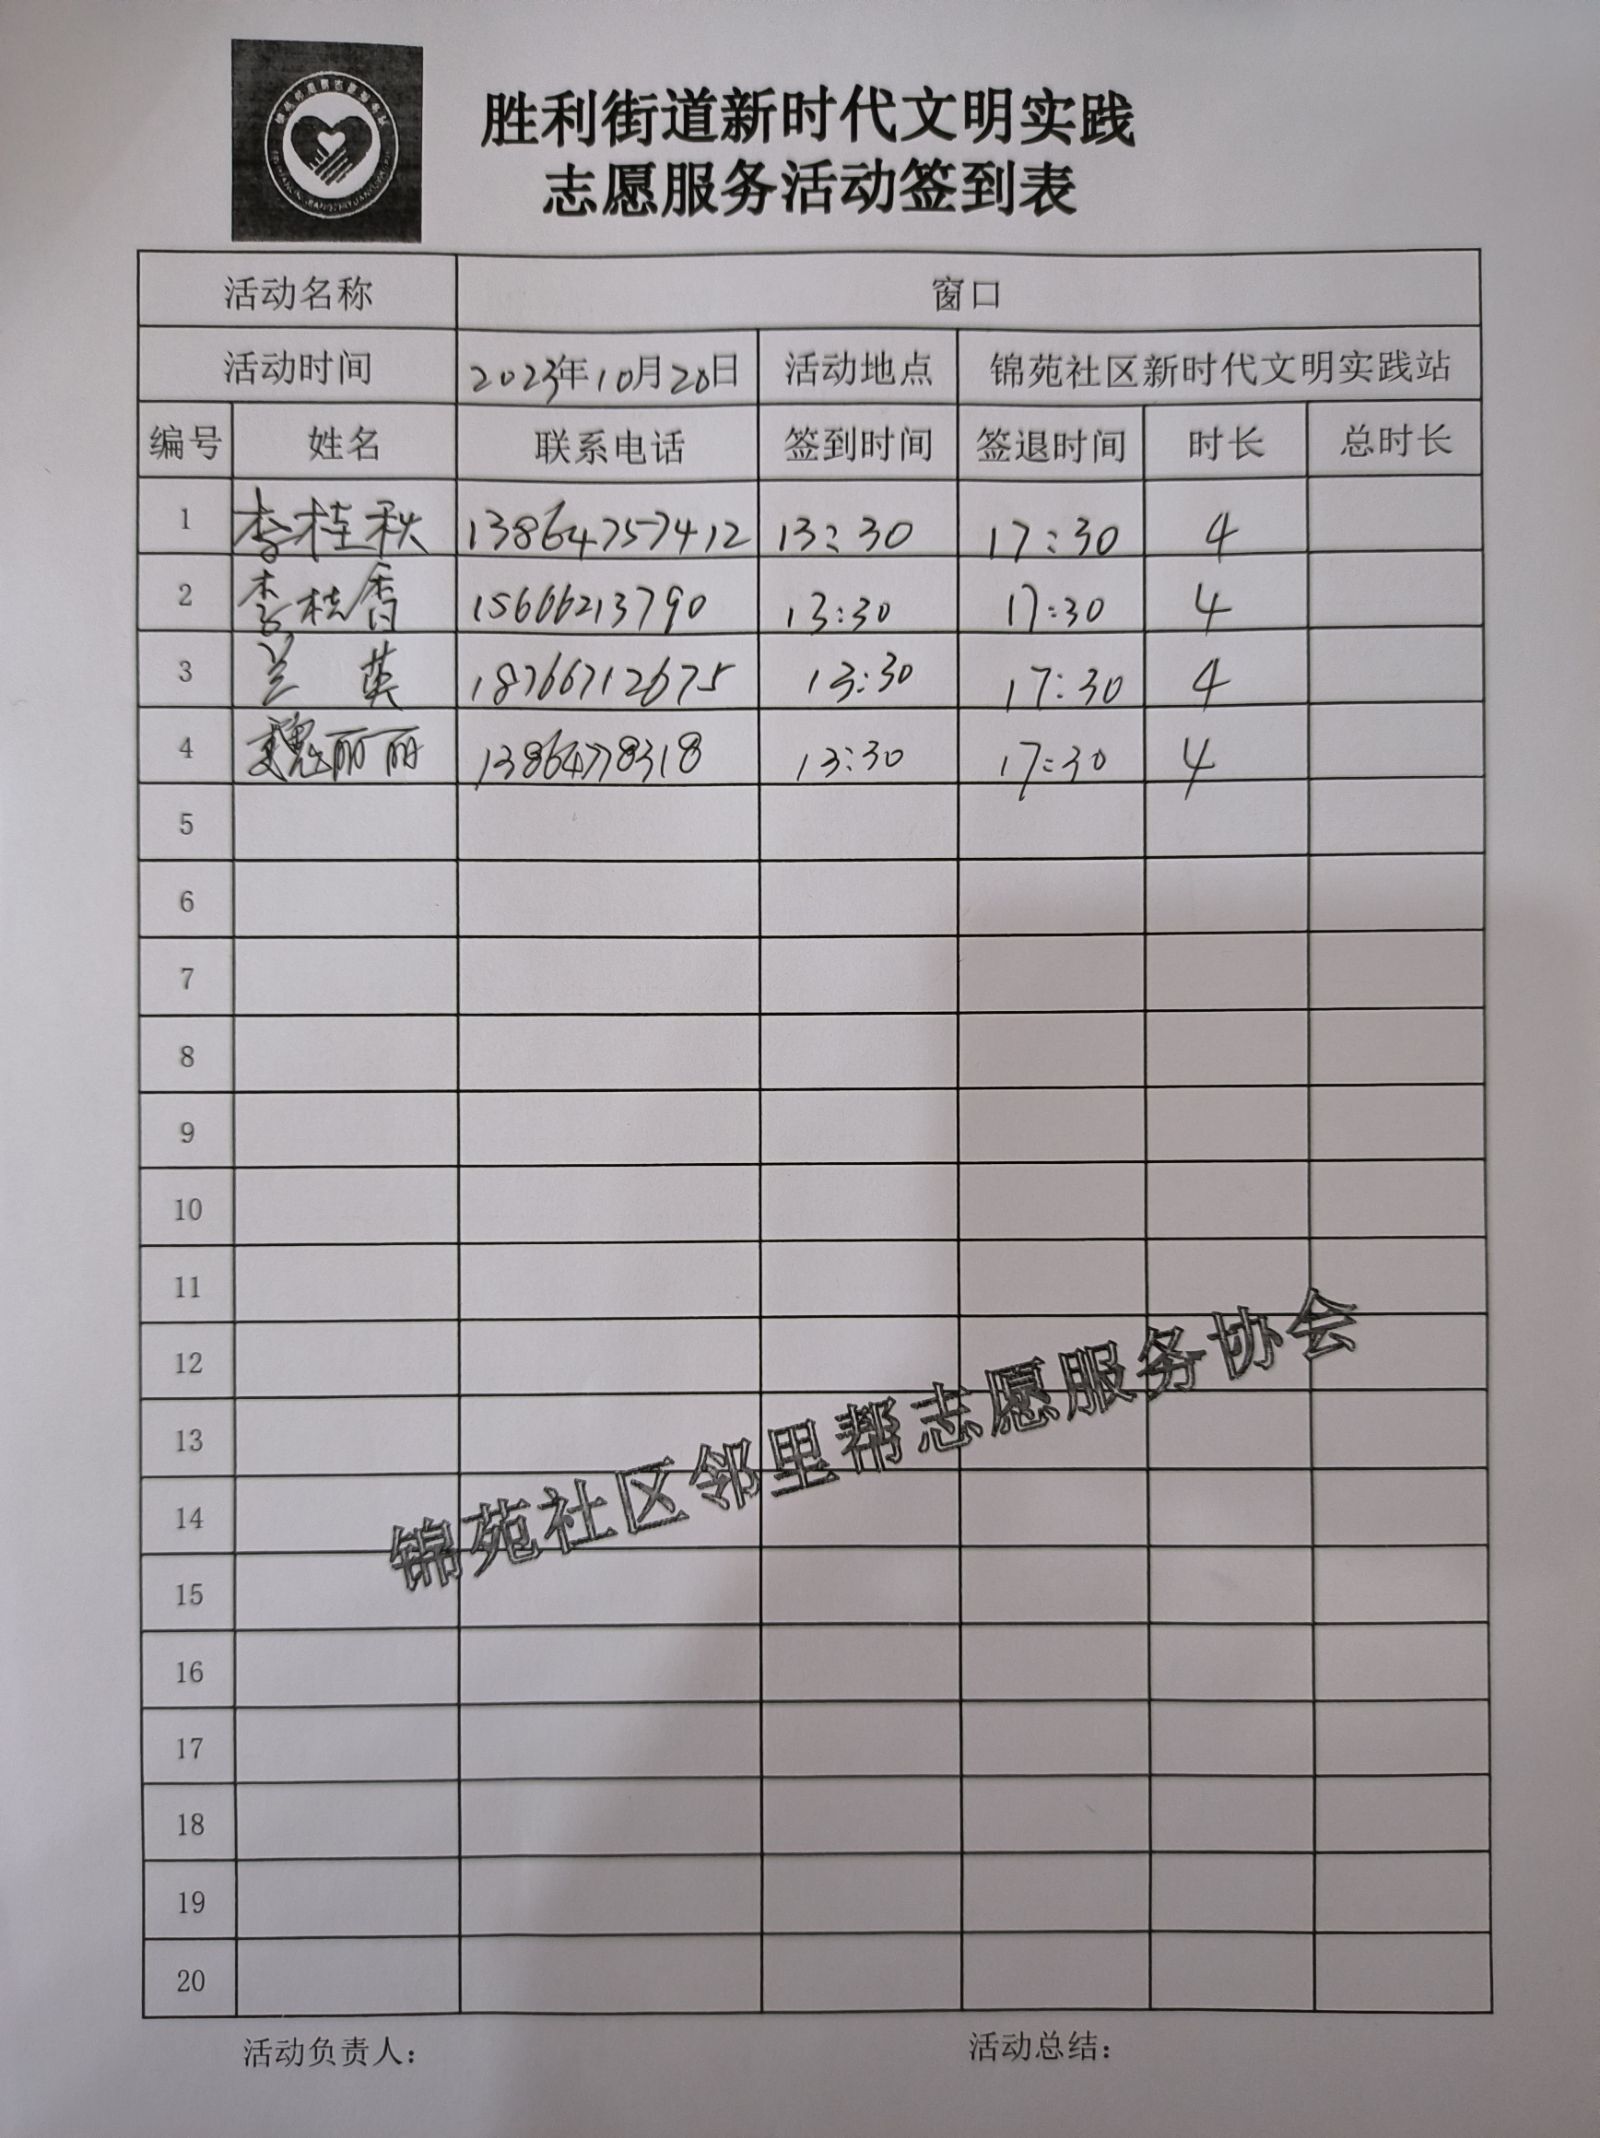 胜利街道新时代文明实践
志愿服务活动签到表
活动名称 窗口
活动时间 2023年10月20日 活动地点 锦苑社区新时代文明实践站
编号 姓名 联系电话 签到时间 签退时间 时长 总时长
1 李桂秋 13864757412 13:30 17:30 4
2 李桂香 15666213790 13:30 17:30 4
3 兰英 18766712675 13:30 17:30 4
4 魏丽丽 13864778318 13:30 17:30 4
5
6
7
8
9
10
11
12
13
14
15
16
17
18
19
20
锦苑社区邻里帮志愿服务协会
活动负责人： 活动总结：